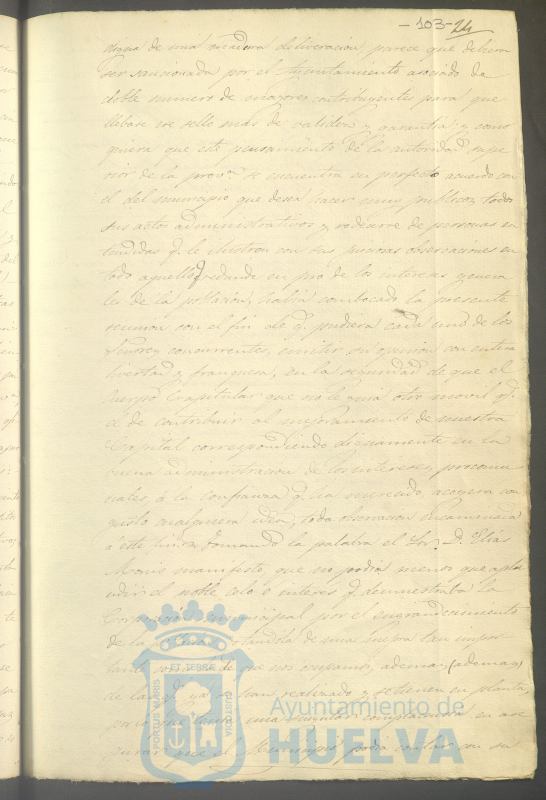 - 103 - 24
de una deliberacion, parece que debiera
ser sancionada por el Ayuntamiento asociado de
doble numero de mayores contribuyentes para que
llebase ese sello mas de validez y garantia; y como
quiera que este pensamiento de la autoridad supe
rior de la prova. se encuentra en perfecto acuerdo con
el del municipio que desea hacer muy publicos todos
sus actos administrativos y rodearse de personas en
tendidas q. le ilustren con sus juiciosas observaciones en
todo aquello q. redunde en pró de los intereses genera
les de la poblacion, habia combocado la presente
reunion con el fin de q. pudiera cada uno de los
Señores concurrentes, emitir su opinion con entera
libertad y franqueza, en la seguridad de que el
Cuerpo Capitular que no le guia otro movil q.
el de contribuir al mejoramiento de nuestra
Capital correspondiendo dignamente en la
buena administracion de los intereses procomu
nales, á la confianza q. ha merecido, acogera con
gusto cualquiera idea, toda observacion encaminada
á este fin. Tomando la palabra el Sor. D. Elias
manifestó, que no podia menos que apla
udir el noble celo é interes q. demuestraba la
Corporacion municipal por el engrandecimiento
de la de una mejora tan impor
tante de que nos ocupamos, ademas (ademas)
de las q. ya se han realizado y se tienen en planta,
una singular complacencia en ase
gurar que el Municipio podia contar con su
PORTUS MARIS ET TERRAE CUSTODIA
Ayuntamiento de
HUELVA